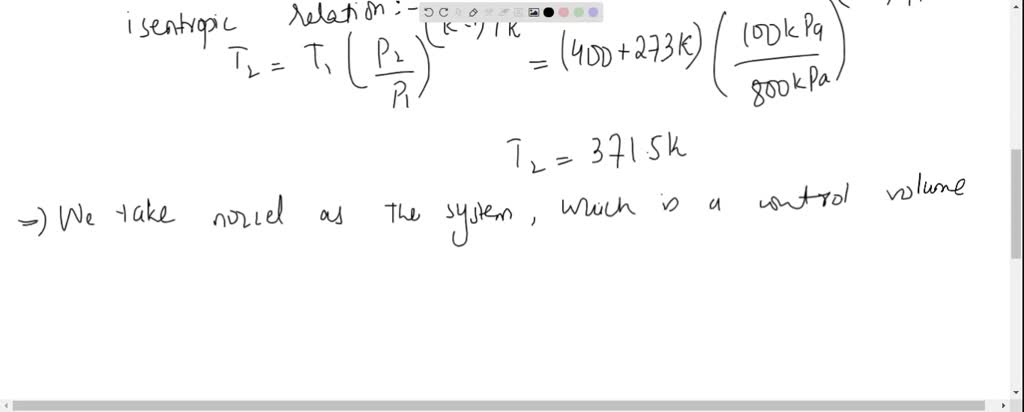 isentropic relation:-
T₂ = T₁ (P₂/P₁)^(k-1)/k = (400+273K) (100kPa/800kPa)
T₂ = 371.5k
=) We take nozzel as the system, which is a control volume